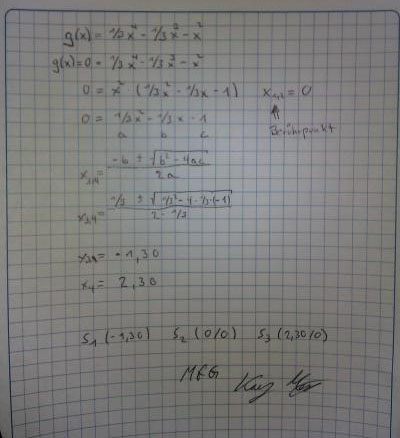 g(x) = 1/3x⁴ - 1/3x³ - x²
g(x)=0 = 1/3x⁴ - 1/3x³ - x²
0 = x² · (1/3x² - 1/3x - 1) x₁,₂ = 0
0 = 1/3x² - 1/3x - 1 Berührpunkt
a b c
x₃,₄ = (-b ± √(b² - 4ac)) / 2a
x₃,₄ = (1/3 ± √(1/3² - 4 · 1/3 · (-1))) / (2 · 1/3)
x₃ = -1,30
x₄ = 2,30
S₁ (-1,30) S₂ (0/0) S₃ (2,30/0)
MFG